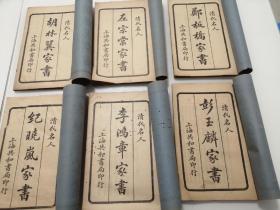 清代名人
胡林翼家書
上海共和書局印行
清代名人
左宗棠家書
上海共和書局印行
清代名人
鄭板橋家書
上海共和書局印行
清代名人
紀曉嵐家書
上海共和書局印行
清代名人
李鴻章家書
上海共和書局印行
清代名人
彭玉麟家書
上海共和書局印行